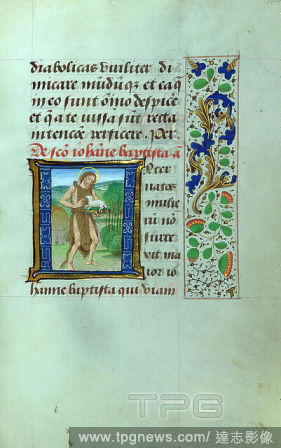 diabolicas viriliter di
micare mundūqz et ea q̄
in eo sunt om̄o despice
et q̄ a te iussa sūt recta
intencōe perficere. Per
De scō iohāne baptista ā
Jnter
natos
mulie
rū nō
surre
xit ma
ior io
hanne baptista qui viam
TPG
www.tpgnews.com/ 達志影像